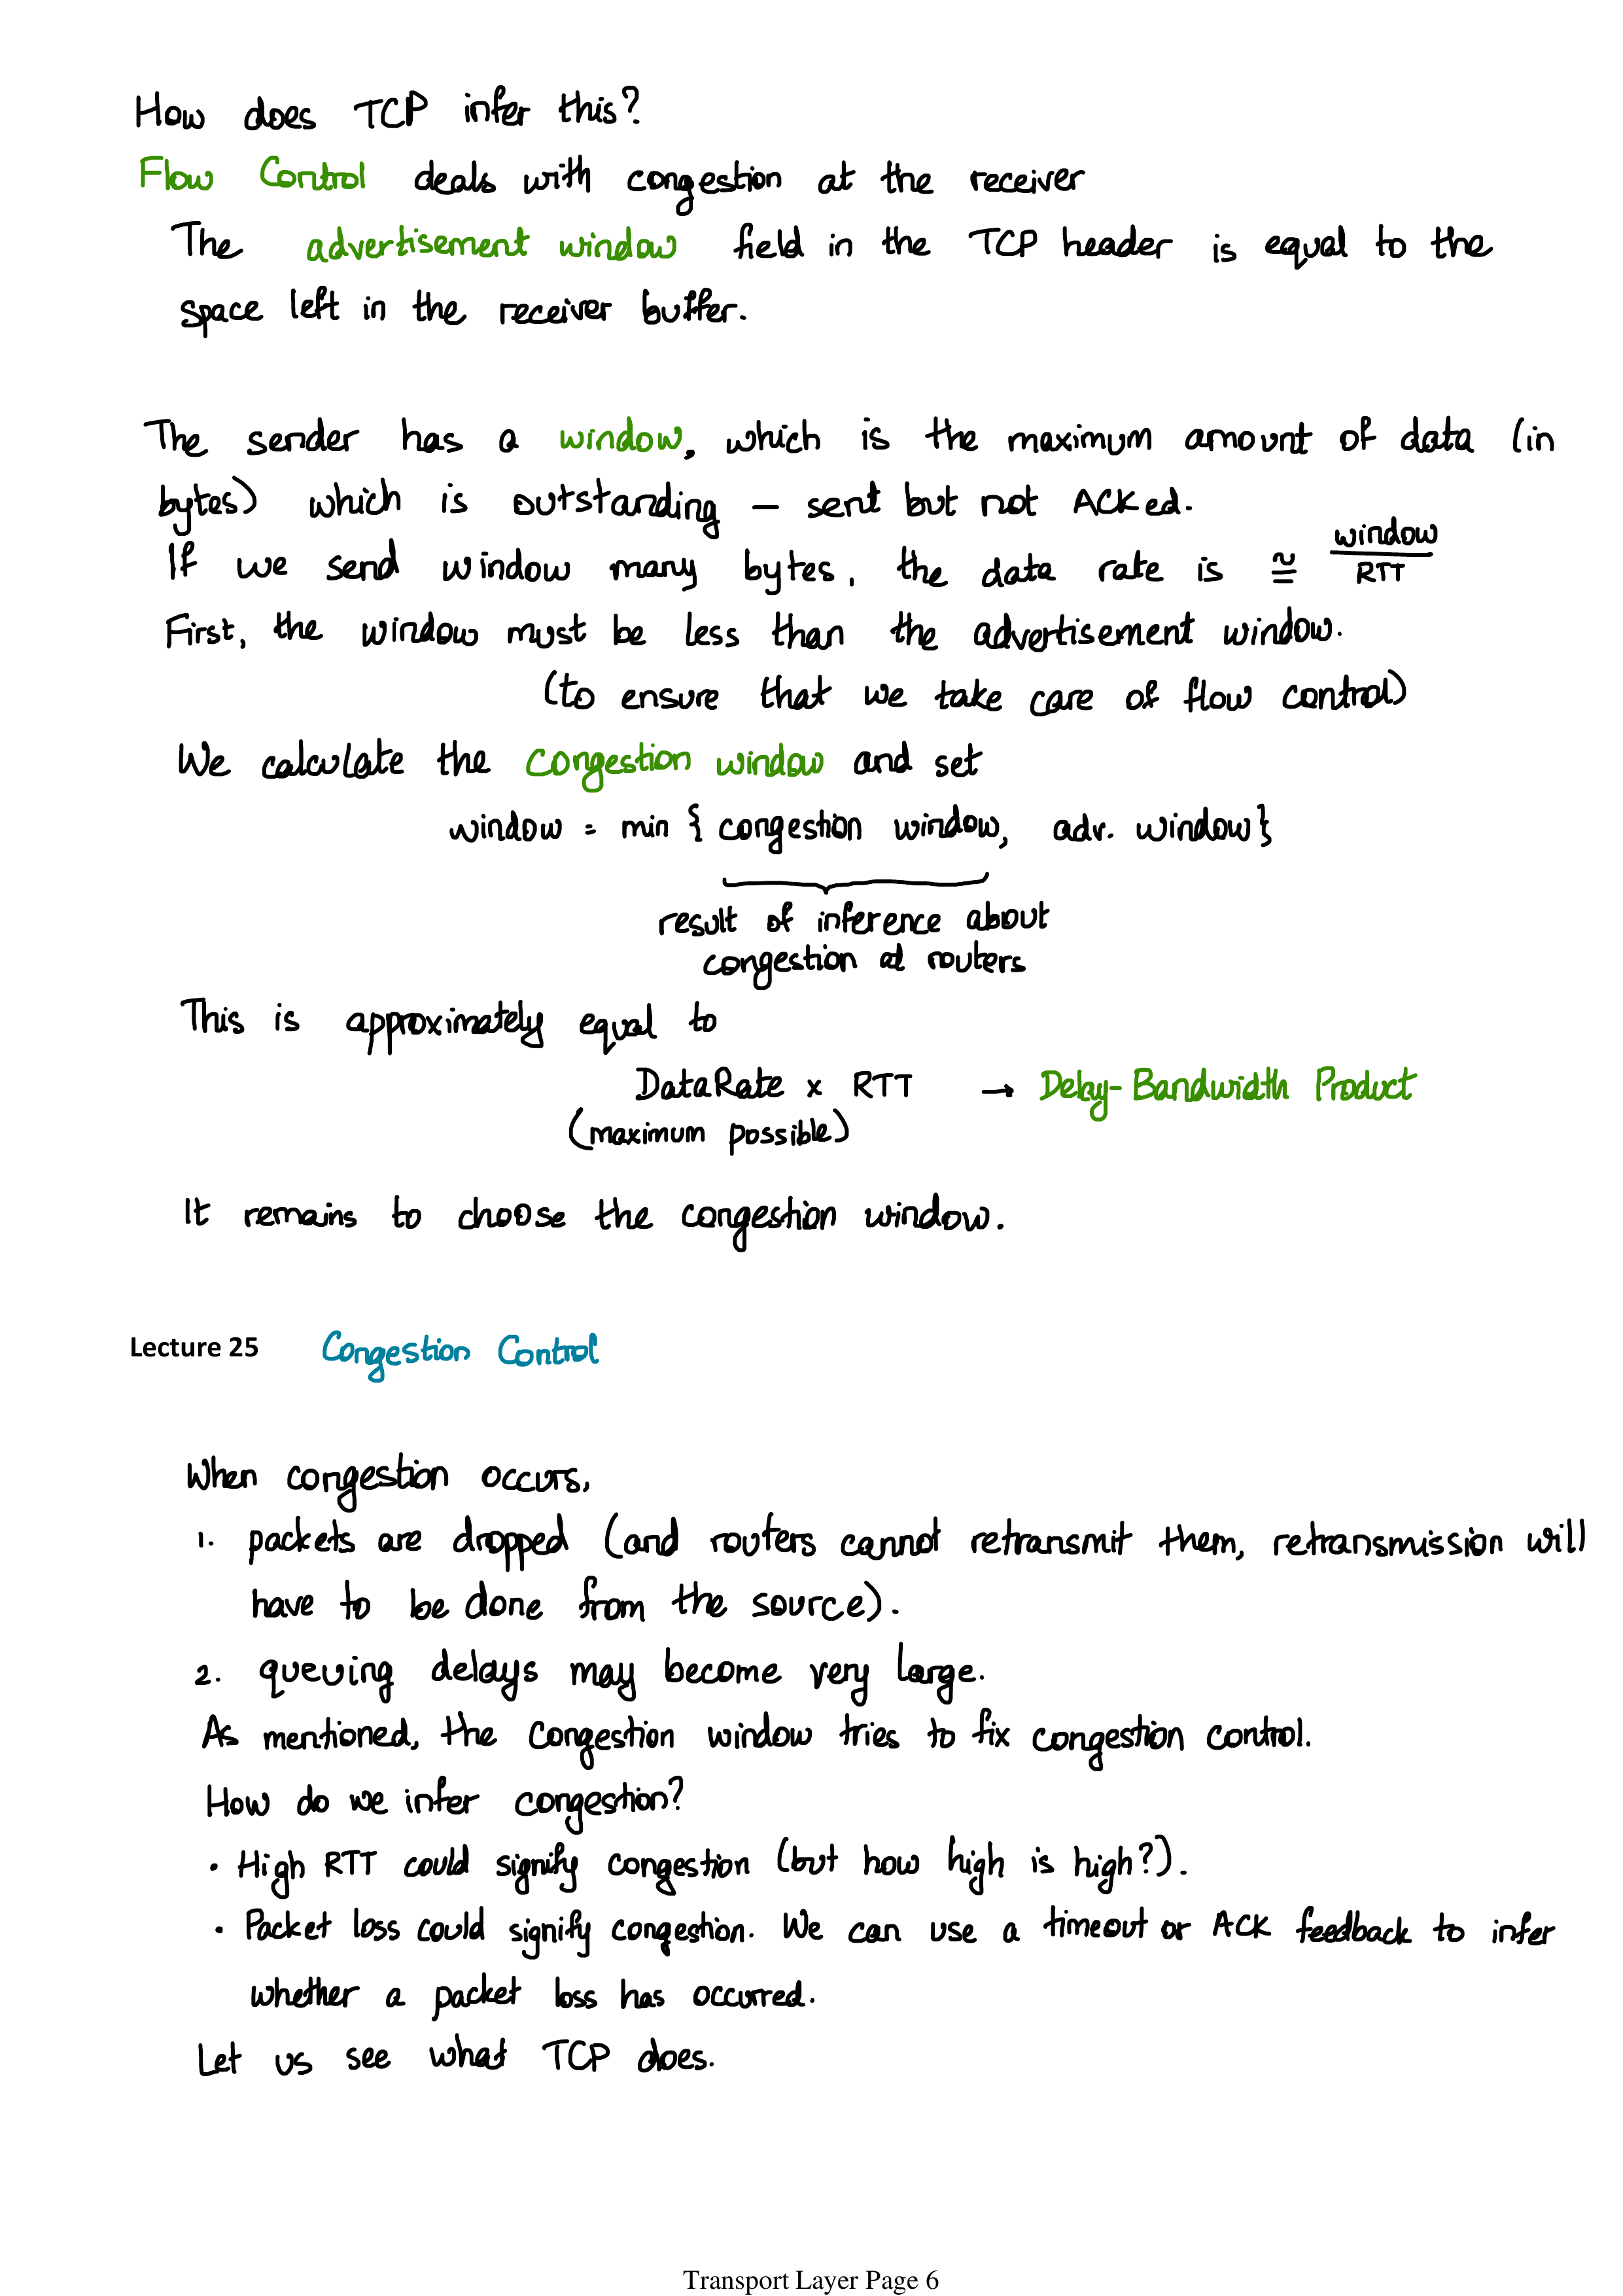 How does TCP infer this?
Flow Control deals with congestion at the receiver
The advertisement window field in the TCP header is equal to the
space left in the receiver buffer.
The sender has a window, which is the maximum amount of data (in
bytes) which is outstanding – sent but not ACKed.
If we send window many bytes, the data rate is ≅ window/RTT
First, the window must be less than the advertisement window.
(to ensure that we take care of flow control)
We calculate the congestion window and set
window = min { congestion window, adv. window}
result of inference about
congestion at routers
This is approximately equal to
DataRate x RTT → Delay-Bandwidth Product
(maximum possible)
It remains to choose the congestion window.
Lecture 25 Congestion Control
When congestion occurs,
1. packets are dropped (and routers cannot retransmit them, retransmission will
have to be done from the source).
2. queuing delays may become very large.
As mentioned, the congestion window tries to fix congestion control.
How do we infer congestion?
• High RTT could signify congestion (but how high is high?).
• Packet loss could signify congestion. We can use a timeout or ACK feedback to infer
whether a packet loss has occurred.
Let us see what TCP does.
Transport Layer Page 6